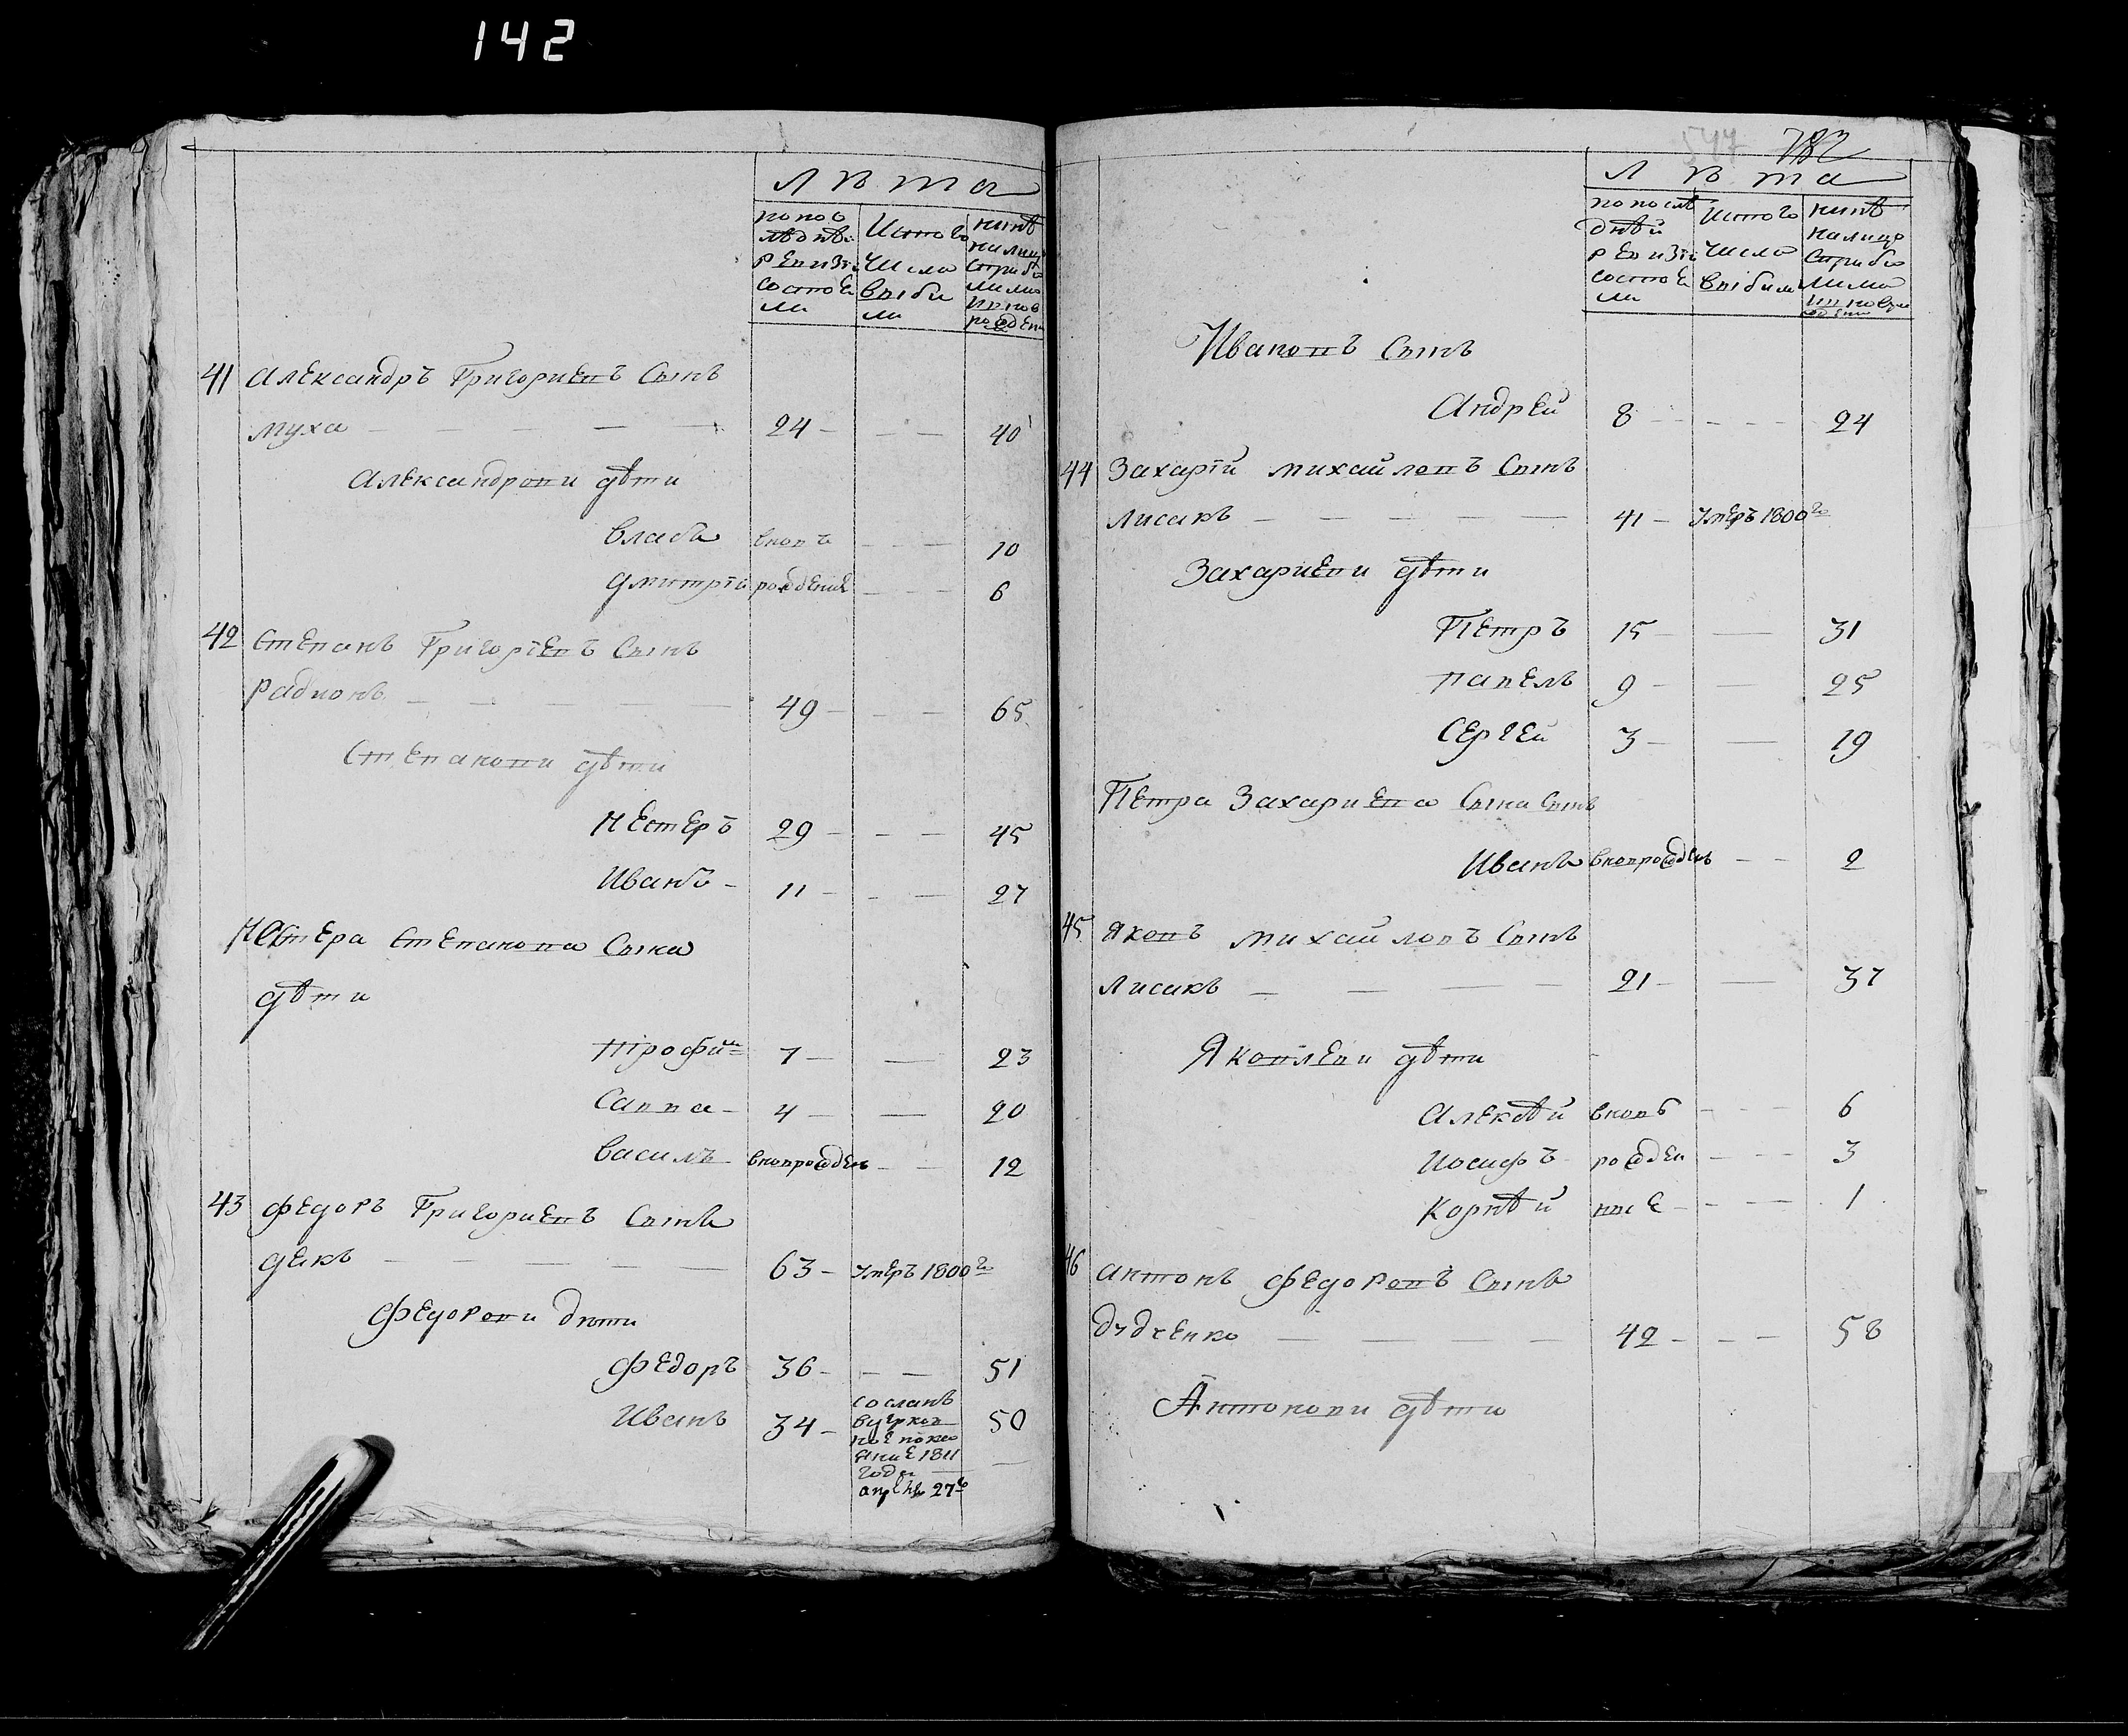 142
Лѣта
по по
слѣднѣй
ревизіи
состоя
ли
Истого
число
выбы
ли
нынѣ
на лицо
с прибы
лыми
и нов
рожден
41 Александръ Григориевъ Сынъ
Муха — — — — — 24 — — — 40
Александрови дѣти
Власъ вновъ — — 10
Дмитрій рожденіе — — — 6
42 Степанъ Григоріевъ Сынъ
Радионъ — — — — — 49 — — — 65
Степанови дѣти
Нестеръ 29 — — — 45
Иванъ — 11 — — — 27
Нестера Степанова Сына
дѣти
Трофим 7 — — 23
Савва — 4 — — 20
Василъ вноврожденъ — — 12
43 Федоръ Григориевъ Сынъ
Декъ — — — — — 63 — умеръ 1800го
Федорови дѣти
Федоръ 36 — — — 51
Иванъ 34 — 50
сосланъ
в церков
ное пока
яние 1811
года
апрѣля 27го
547 782
Лѣта
по послѣ
днѣй
ревизіи
состоя
ли
Истого
число
выбыли
нынѣ
налицо
с прибы
лыми
Ивановъ Сынъ
Андрей 8 — — — — 24
44 Захарій Михайловъ Сынъ
Лисакъ — — — — — 41 — умеръ 1800го
Захариеви дѣти
Петръ 15 — — 31
Павелъ 9 — — 25
Сергей 3 — — 19
Петра Захариева Сына Сынъ
Иванъ вноврожденъ — — 2
45 Яковъ Михайловъ Сынъ
Лисакъ — — — — 21 — — 37
Яковлеви дѣти
Алексѣй вновъ — — — 6
Иосифъ рожден — — — 3
Корнѣй ные — — — 1
46 Антонъ Федоровъ Сынъ
Дудченко — — — — 42 — — — 58
Антонови дѣти